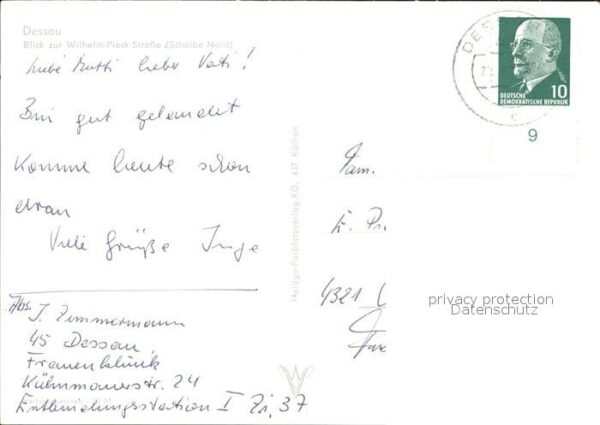 Dessau
Blick zur Wilhelm-Pieck-Straße (Scheibe Nord)
Liebe Mutti lieber Vati!
Bin gut gelandet
Komme heute schon
dran
Viele Grüße Inge
Abs. I. Zimmermann
45 Dessau
Frauenklinik
Kühnmauerstr. 24
Entbindungsstation I Zi. 37
Heldge-Farbfotoverlag KG, 437 Köthen
DES
10
DEUTSCHE
DEMOKRATISCHE REPUBLIK
9
Fam.
E. Pr
4321
privacy protection
Datenschutz